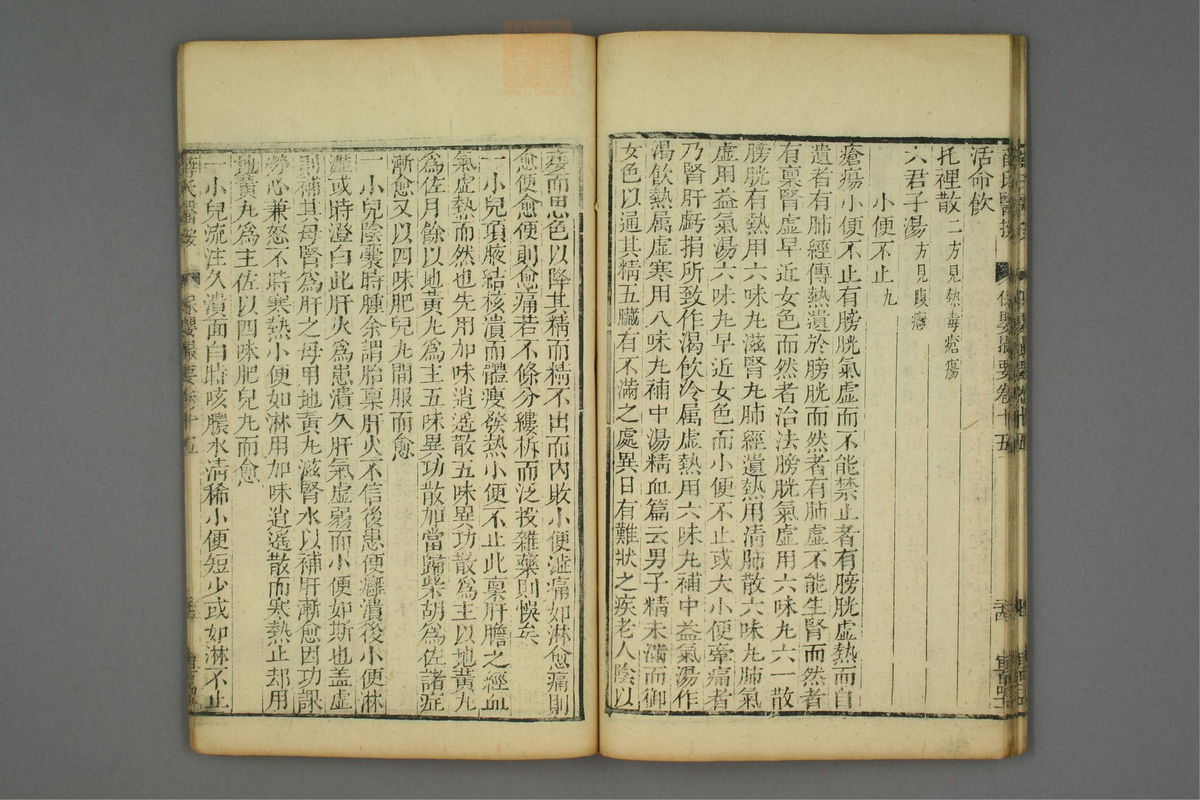 薛氏醫按 保嬰撮要卷十五
活命飲
托裡散二方見熱毒瘡瘍
六君子湯方見腹癰
小便不止九
瘡瘍小便不止有膀胱氣虛而不能禁止者有膀胱虛熱而自
遺者有肺經傳熱遺於膀胱而然者有肺虛不能生腎而然者
有稟腎虛早近女色而然者治法膀胱氣虛用六味丸六一散
膀胱有熱用六味丸滋腎丸肺經遺熱用清肺散六味丸肺氣
虛用益氣湯六味丸早近女色而小便不止或大小便牽痛者
乃腎肝虧損所致作渴飲冷属虛熱用六味丸補中益氣湯作
渴飲熱属虛寒用八味丸補中湯精血篇云男子精未滿而御
女色以通其精五臟有不滿之處異日有難狀之疾老人陰以
痿而思色以降其精而精不出而內敗小便澁痛如淋愈痛則
愈便愈便則愈痛若不條分縷析而泛投雜藥則悞矣
一小兒項腋結核潰而體瘦發熱小便不止此稟肝膽之經血
氣虛熱而然也先用加味逍遥散五味異功散為主以地黃丸
為佐月餘以地黃丸為主五味異功散加當歸柴胡為佐諸症
漸愈又以四味肥兒丸間服而愈
一小兒陰囊時腫余謂胎稟肝火不信後患便癰潰後小便淋
瀝或時澄白此肝火為患潰久肝氣虛弱而小便如斯也盖虛
則補其母腎為肝之母用地黃丸滋腎水以補肝漸愈因功課
勞心兼怒不時寒熱小便如淋用加味逍遥散而寒熱止却用
地黃丸為主佐以四味肥兒丸而愈
一小兒流注久潰面白時咳膿水清稀小便短少或如淋不止
薛氏醫按 保嬰撮要卷十五